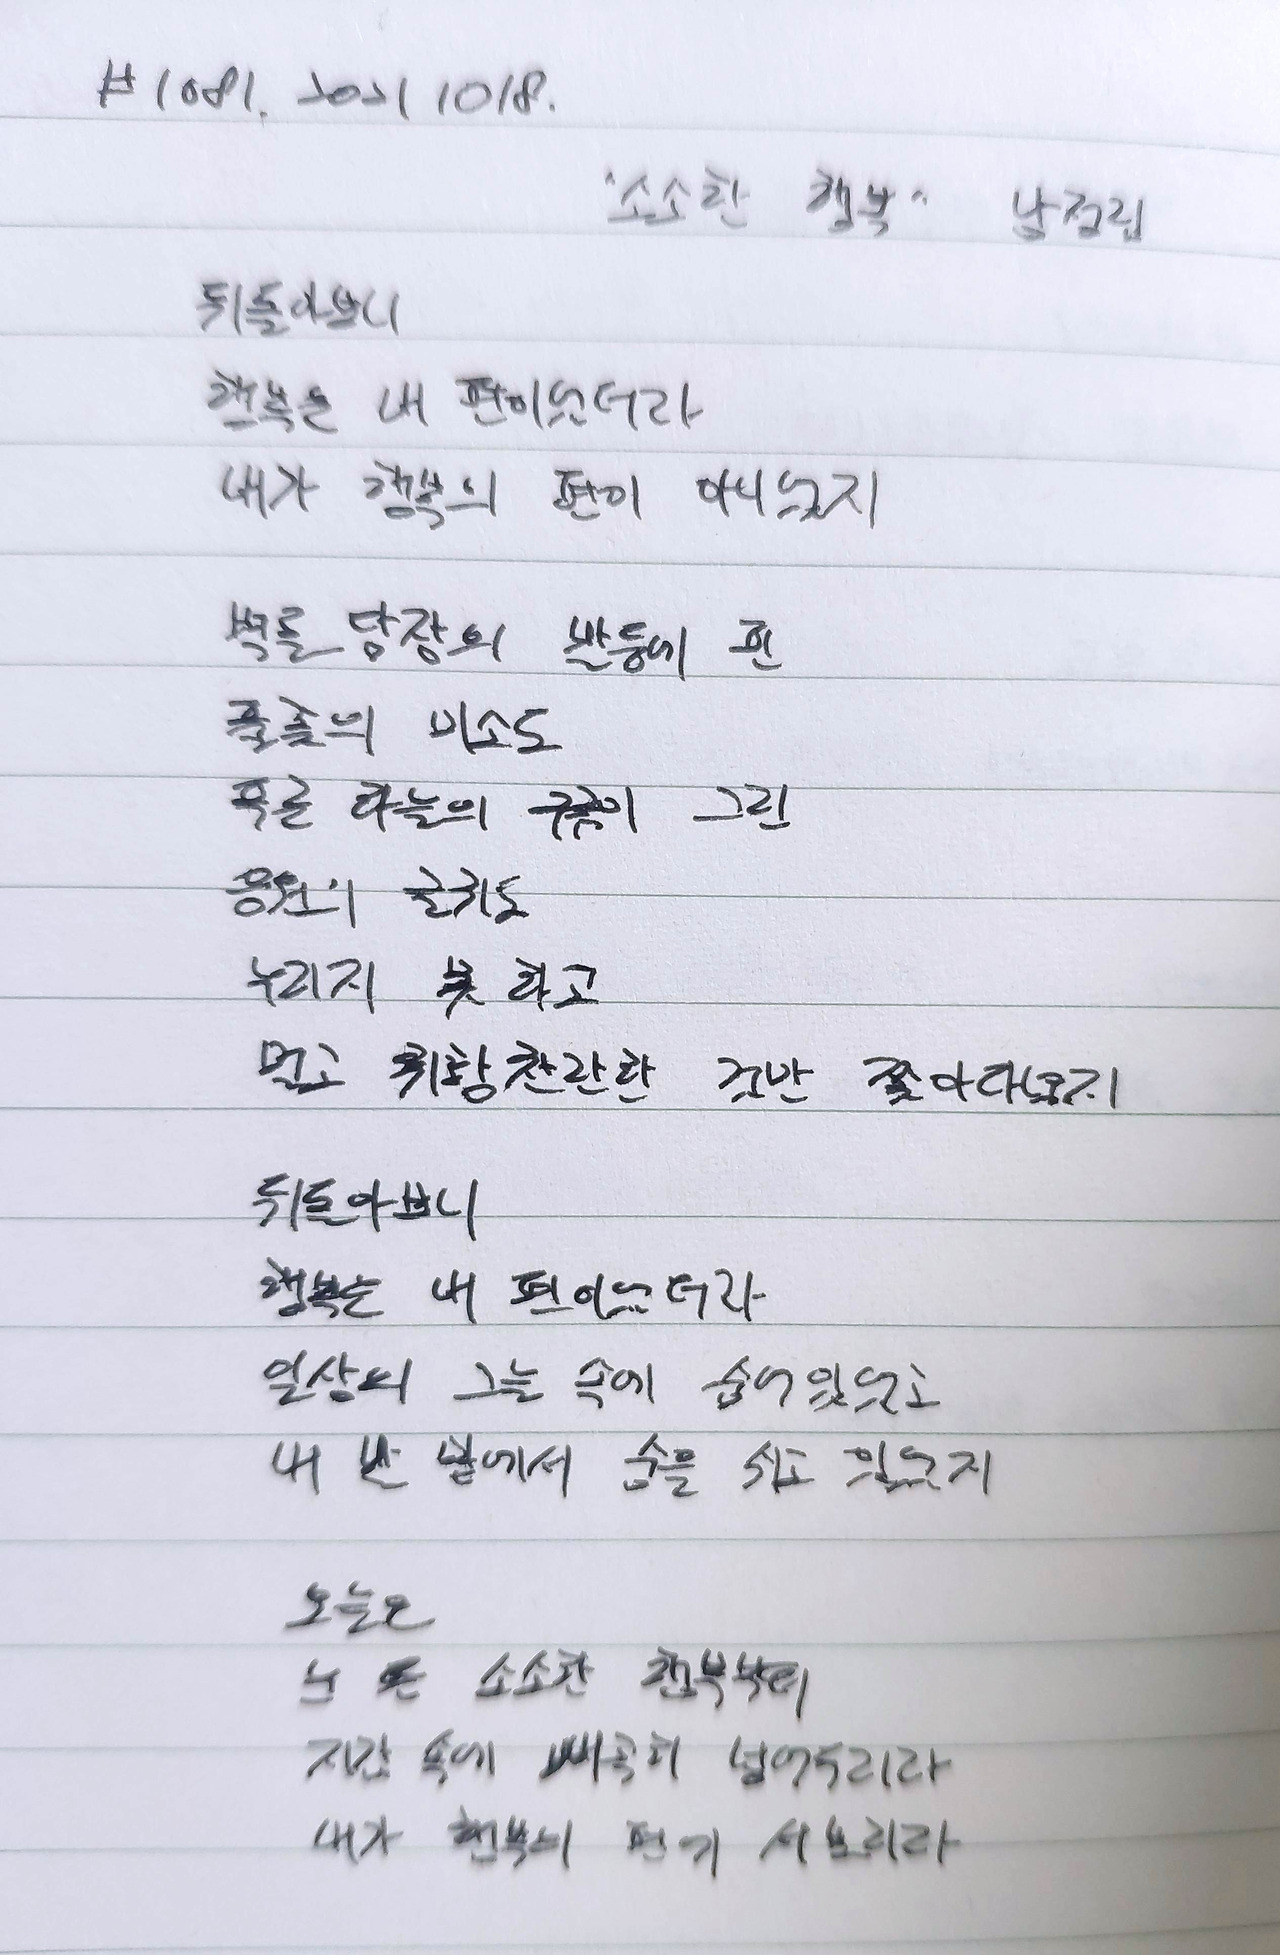 #1081. 2021 1018.
"소소한 행복" 남정림
뒤돌아보니
행복은 내 편이었더라
내가 행복의 편이 아니었지
벽돌 담장의 발등에 핀
풀꽃의 미소도
푸른 하늘의 구름이 그린
응원의 글귀도
누리지 못 하고
멀고 휘황찬란한 것만 쫓아다녔지
뒤돌아보니
행복은 내 편이었더라
일상의 그늘 속에 숨어있었고
내 발 밑에서 숨을 쉬고 있었지
오늘은
눈 뜬 소소한 행복부터
지갑 속에 빼곡히 넣어두리라
내가 행복의 편이 서보리라